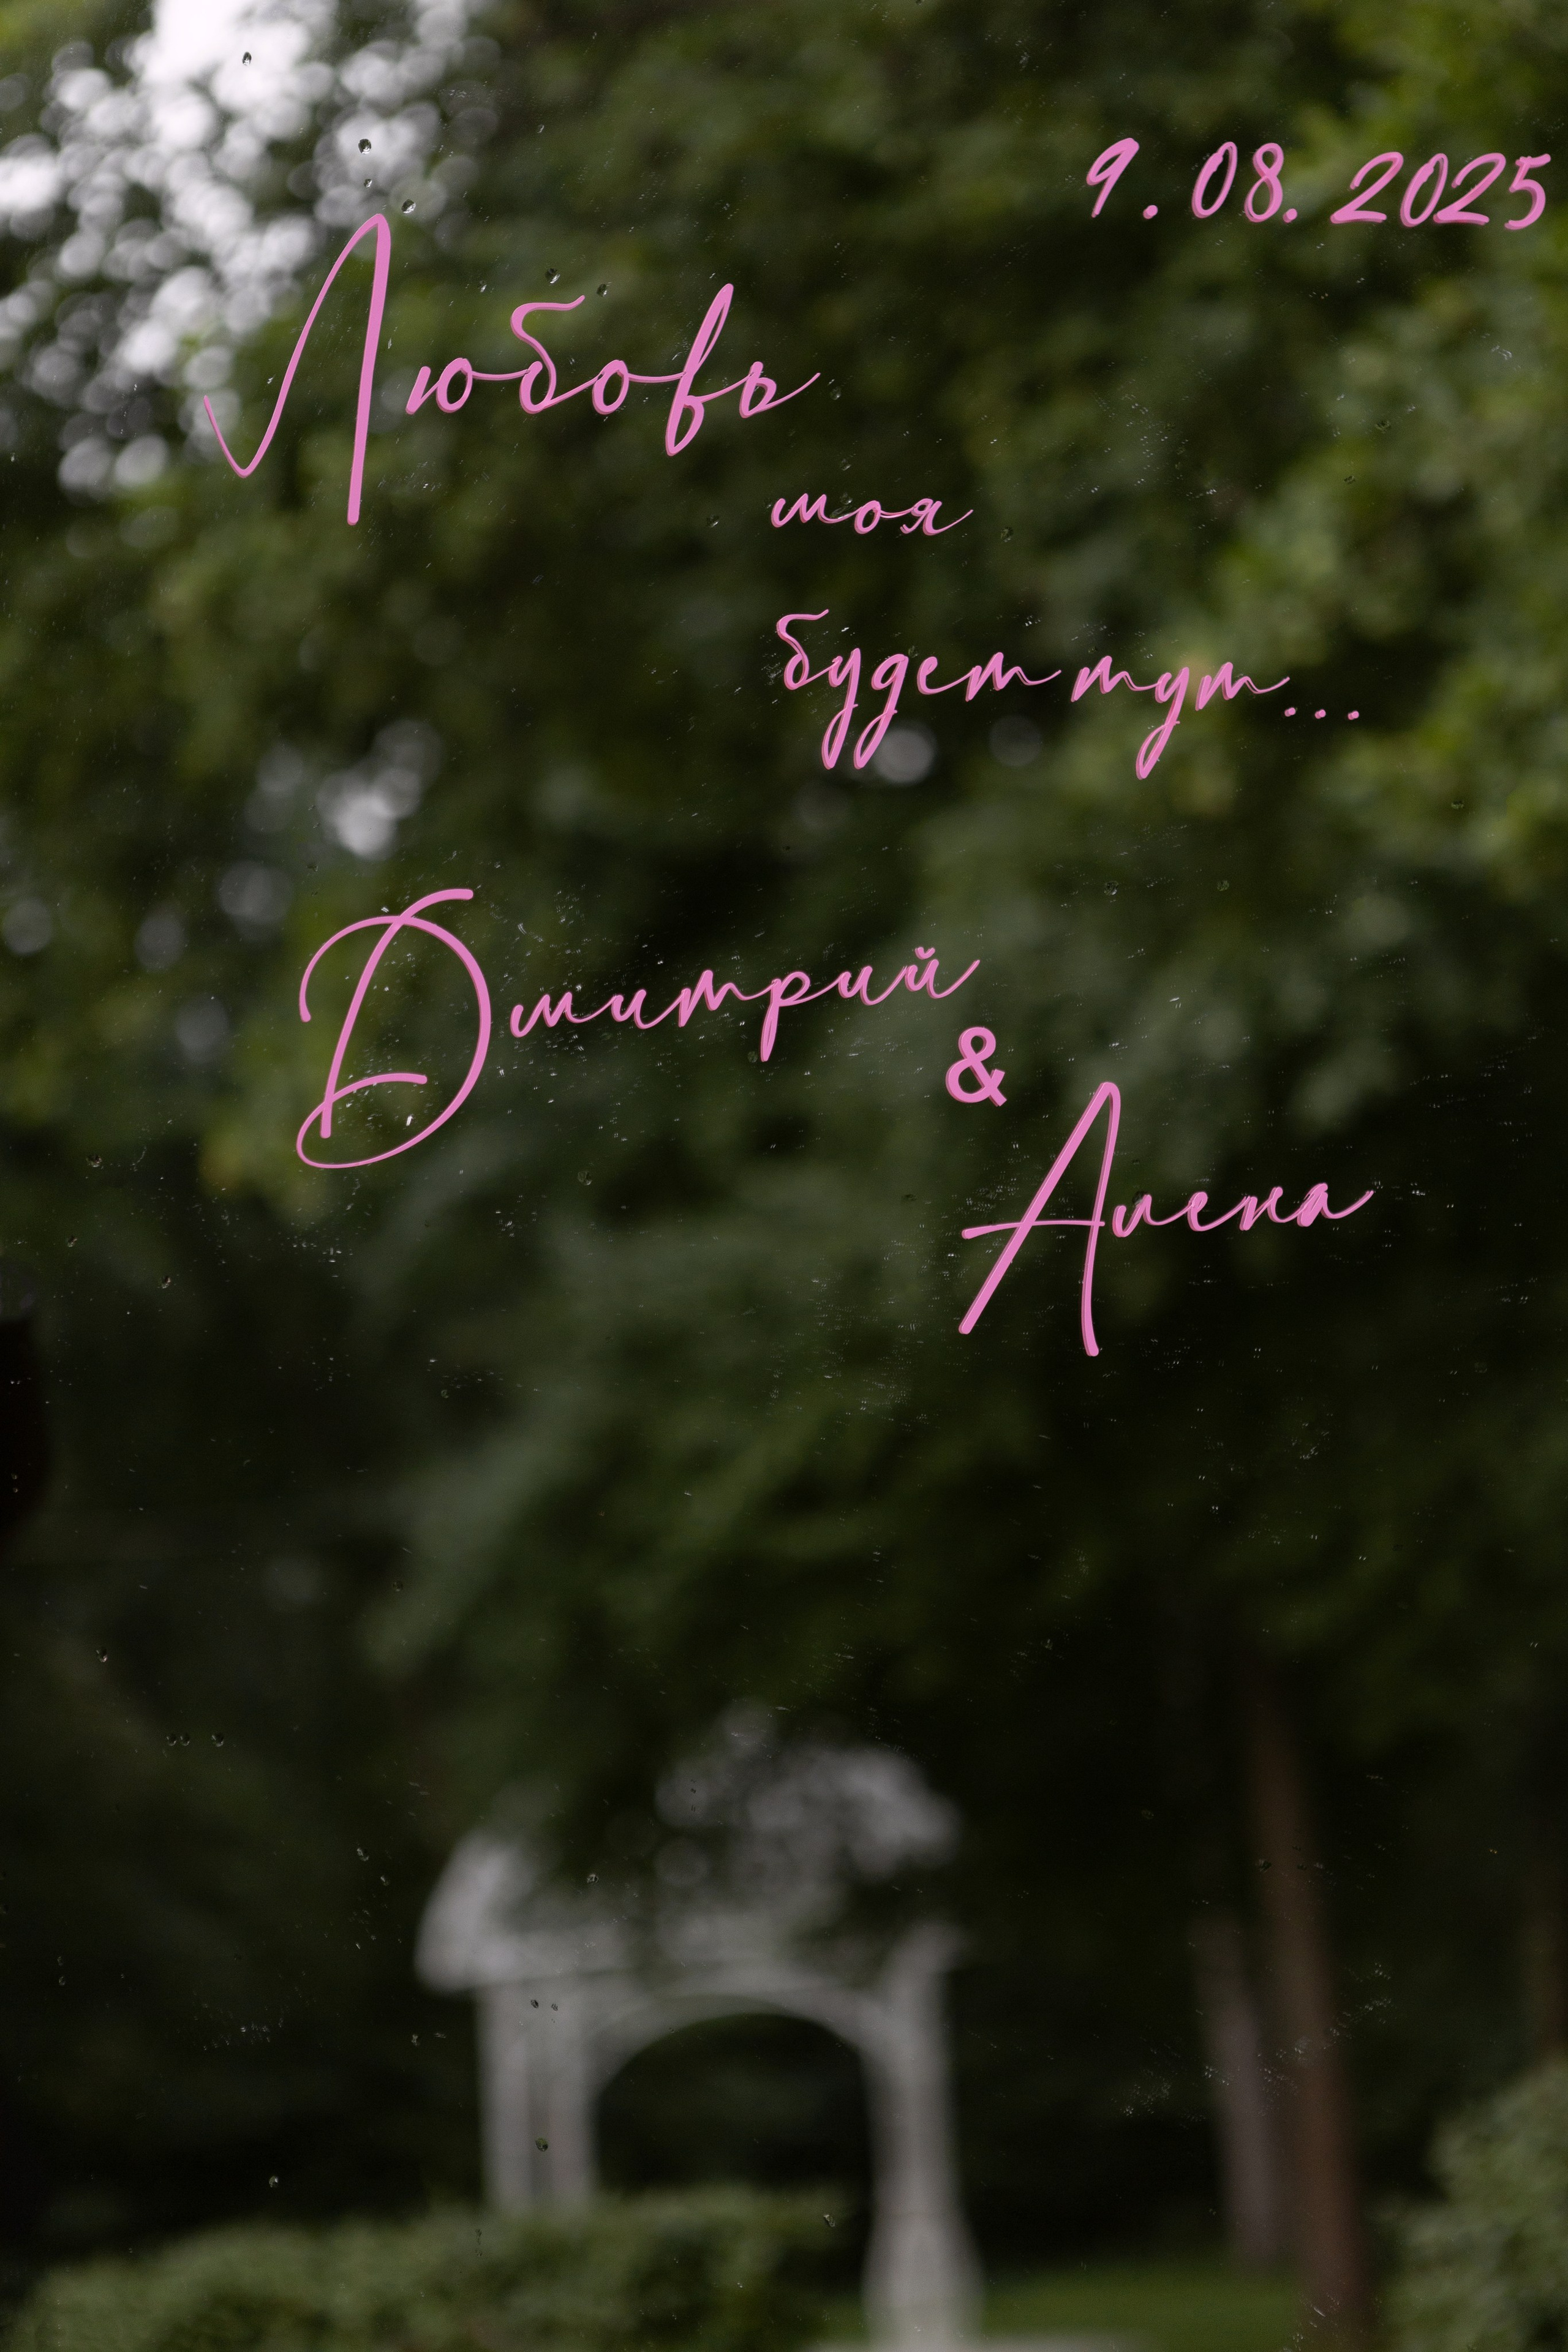 9.08.2025
Любовь
моя
будет тут...
Дмитрий
&
Алена